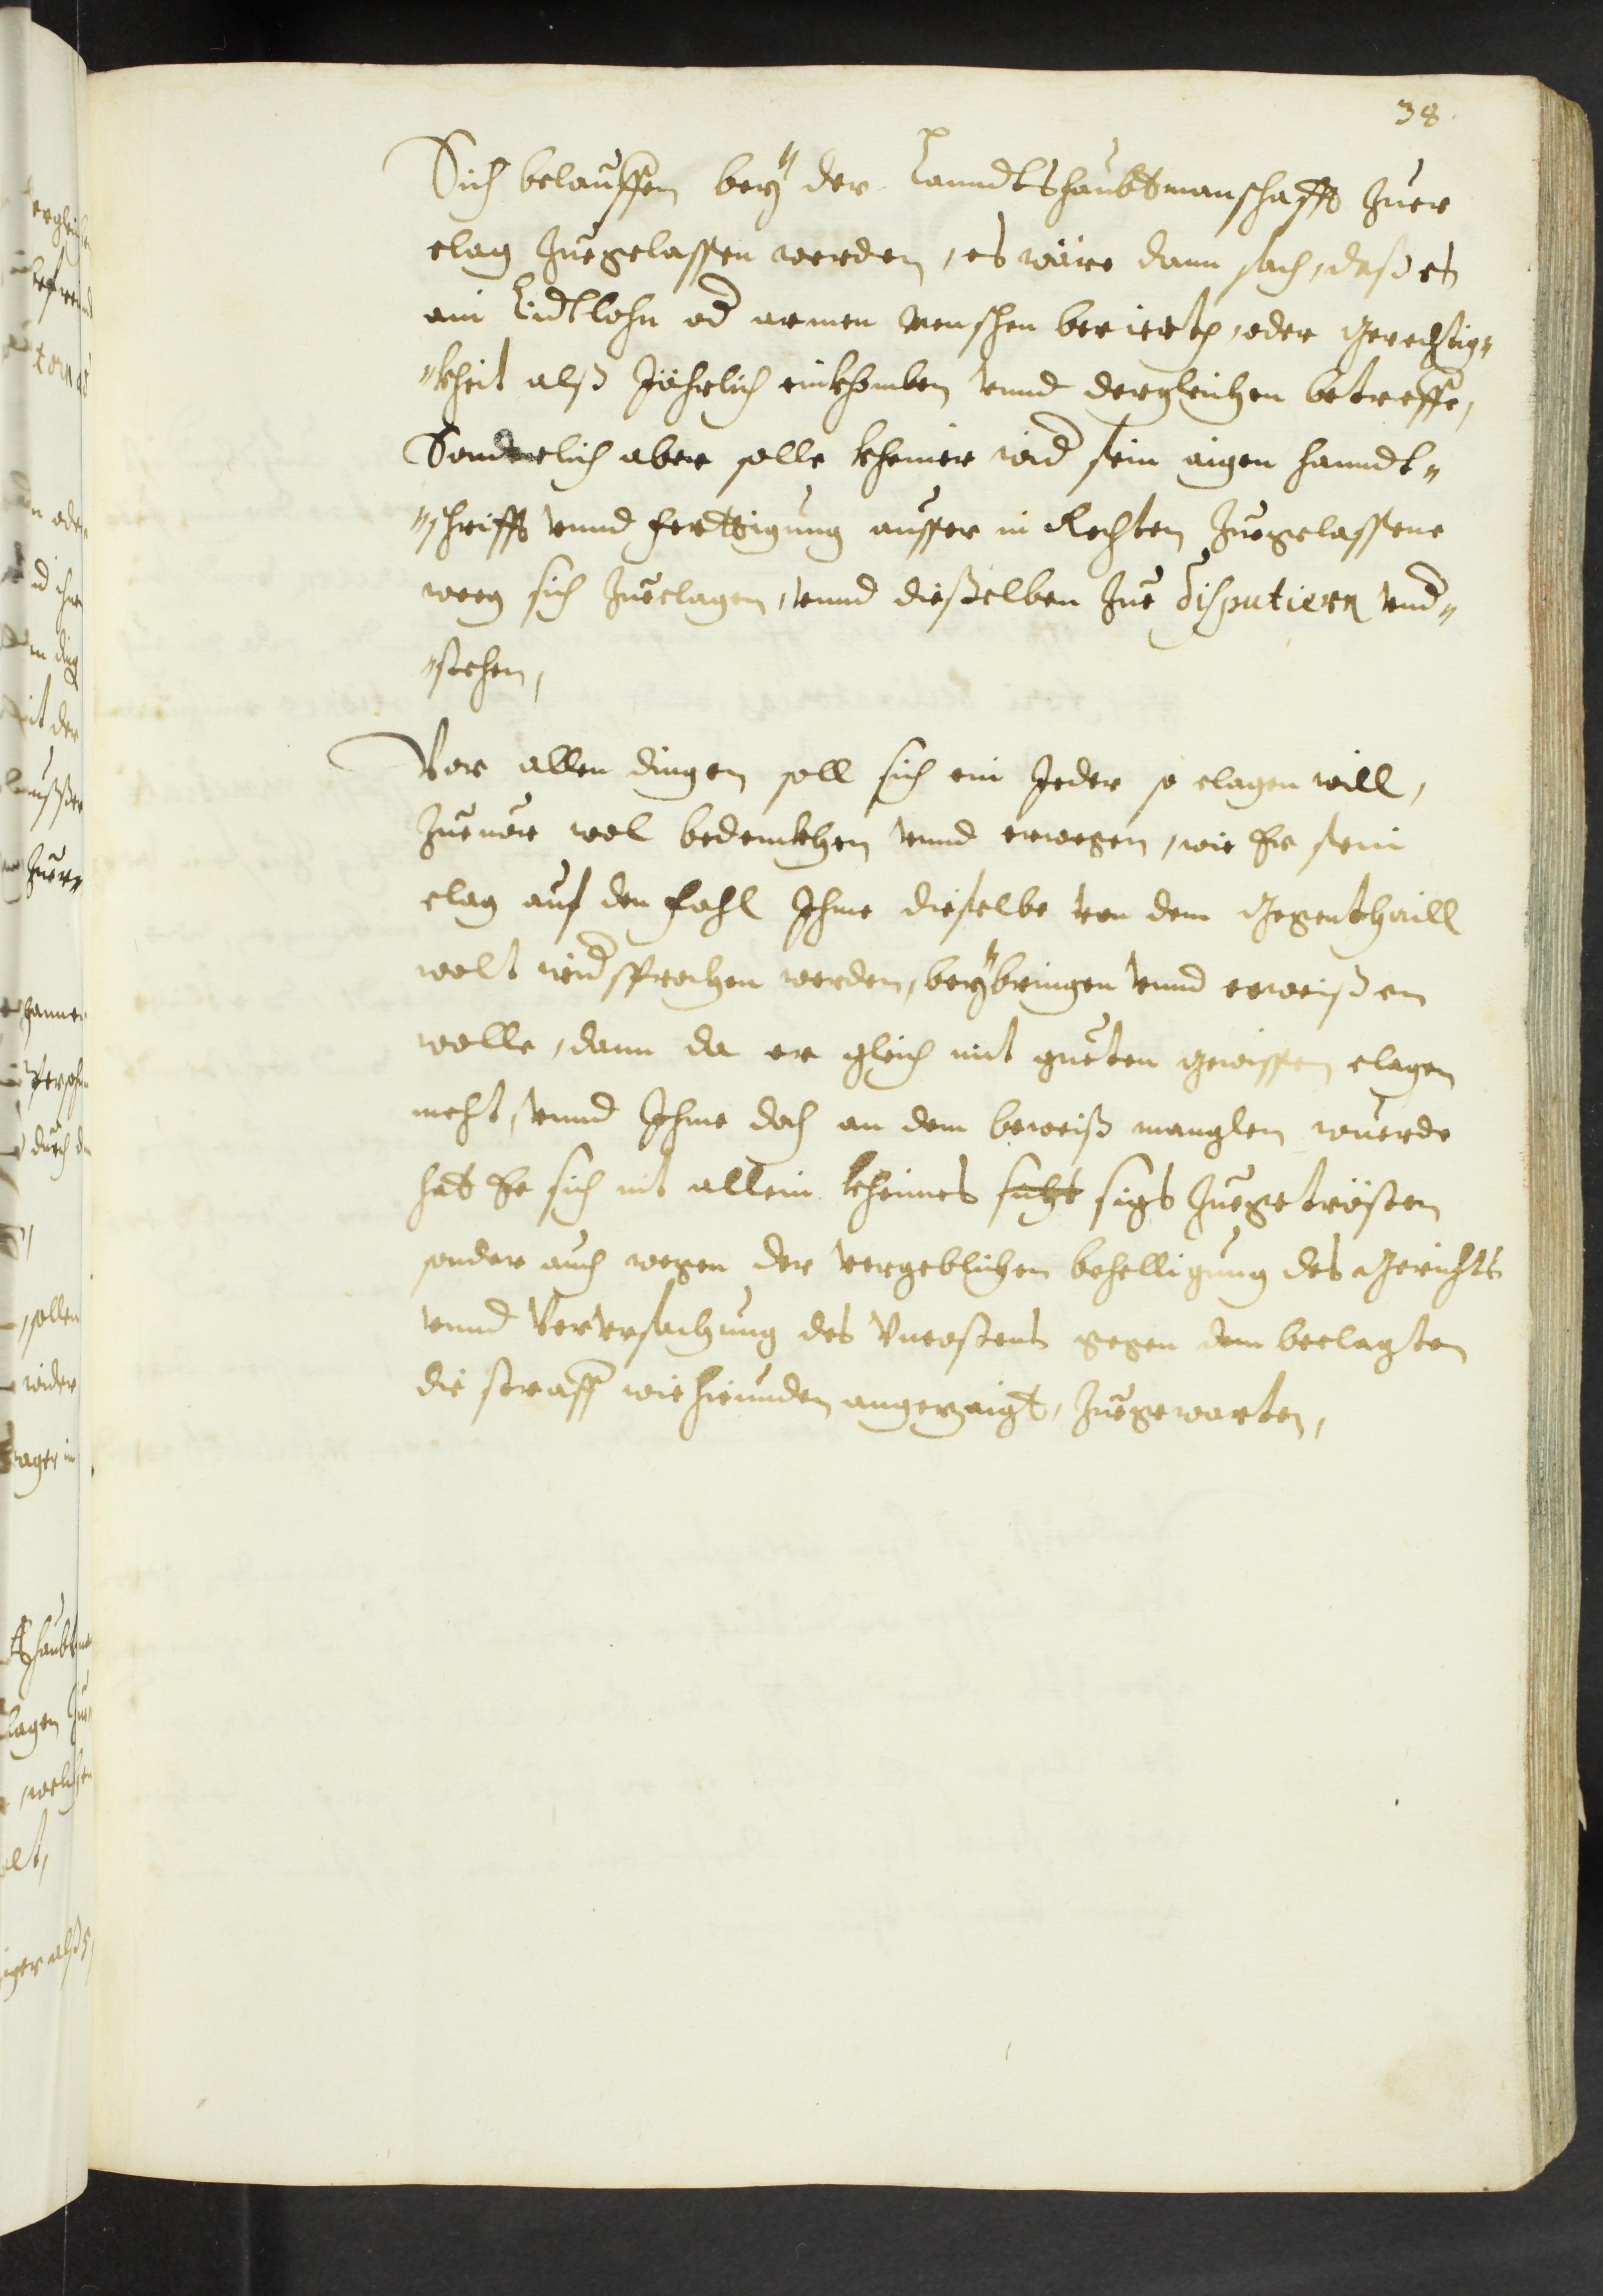 38.
Sich belauffen beÿ der Lanndtshaubtmanschafft Zuer
clag Zuegelassen werden, es wäre dann sach, daß es
ain Lidtlohn od armen menschen berierte, oder Gerechtig„
„kheit alß Jährlich einkhomben vnnd dergleichen betreffe,
Sonderlich aber solle kheiner wid sein aigen hanndt„
„schrifft vnnd Ferttigung ausser in Rechten Zuegelassene
weeg sich Zueclagen, vnnd dieselben Zue disputiern vnd„
„stehen,
Vor allen dingen soll sich ein Jeder so clagen will,
Zueuor wol bedenckhen vnnd erwegen, wie Er sein
clag auf den Fahl Ihme dieselbe von dem Gegenthaill
wolt widsprochen werden, beÿbringen vnnd erweißen
wolle, dann da er gleich mit gueten gewissen clagen
mecht, vnnd Ihme doch an dem beweiß manglen wuerde
hat Er sich nit allein kheines sichs sigs Zuegetrösten
sonder auch wegen der vergeblichen behelligung des Gerichts
vnnd Vervrsachung des Vncostens gegen dem beclagten
die straff wie hieunden angezaigt, Zuegewarten,